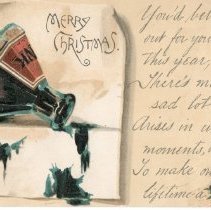 MERRY
CHRISTMAS.
INK
You'd bet
out for you
This year,
There's m
sad lot
Arises in u
moments,
To make o
lifetime a